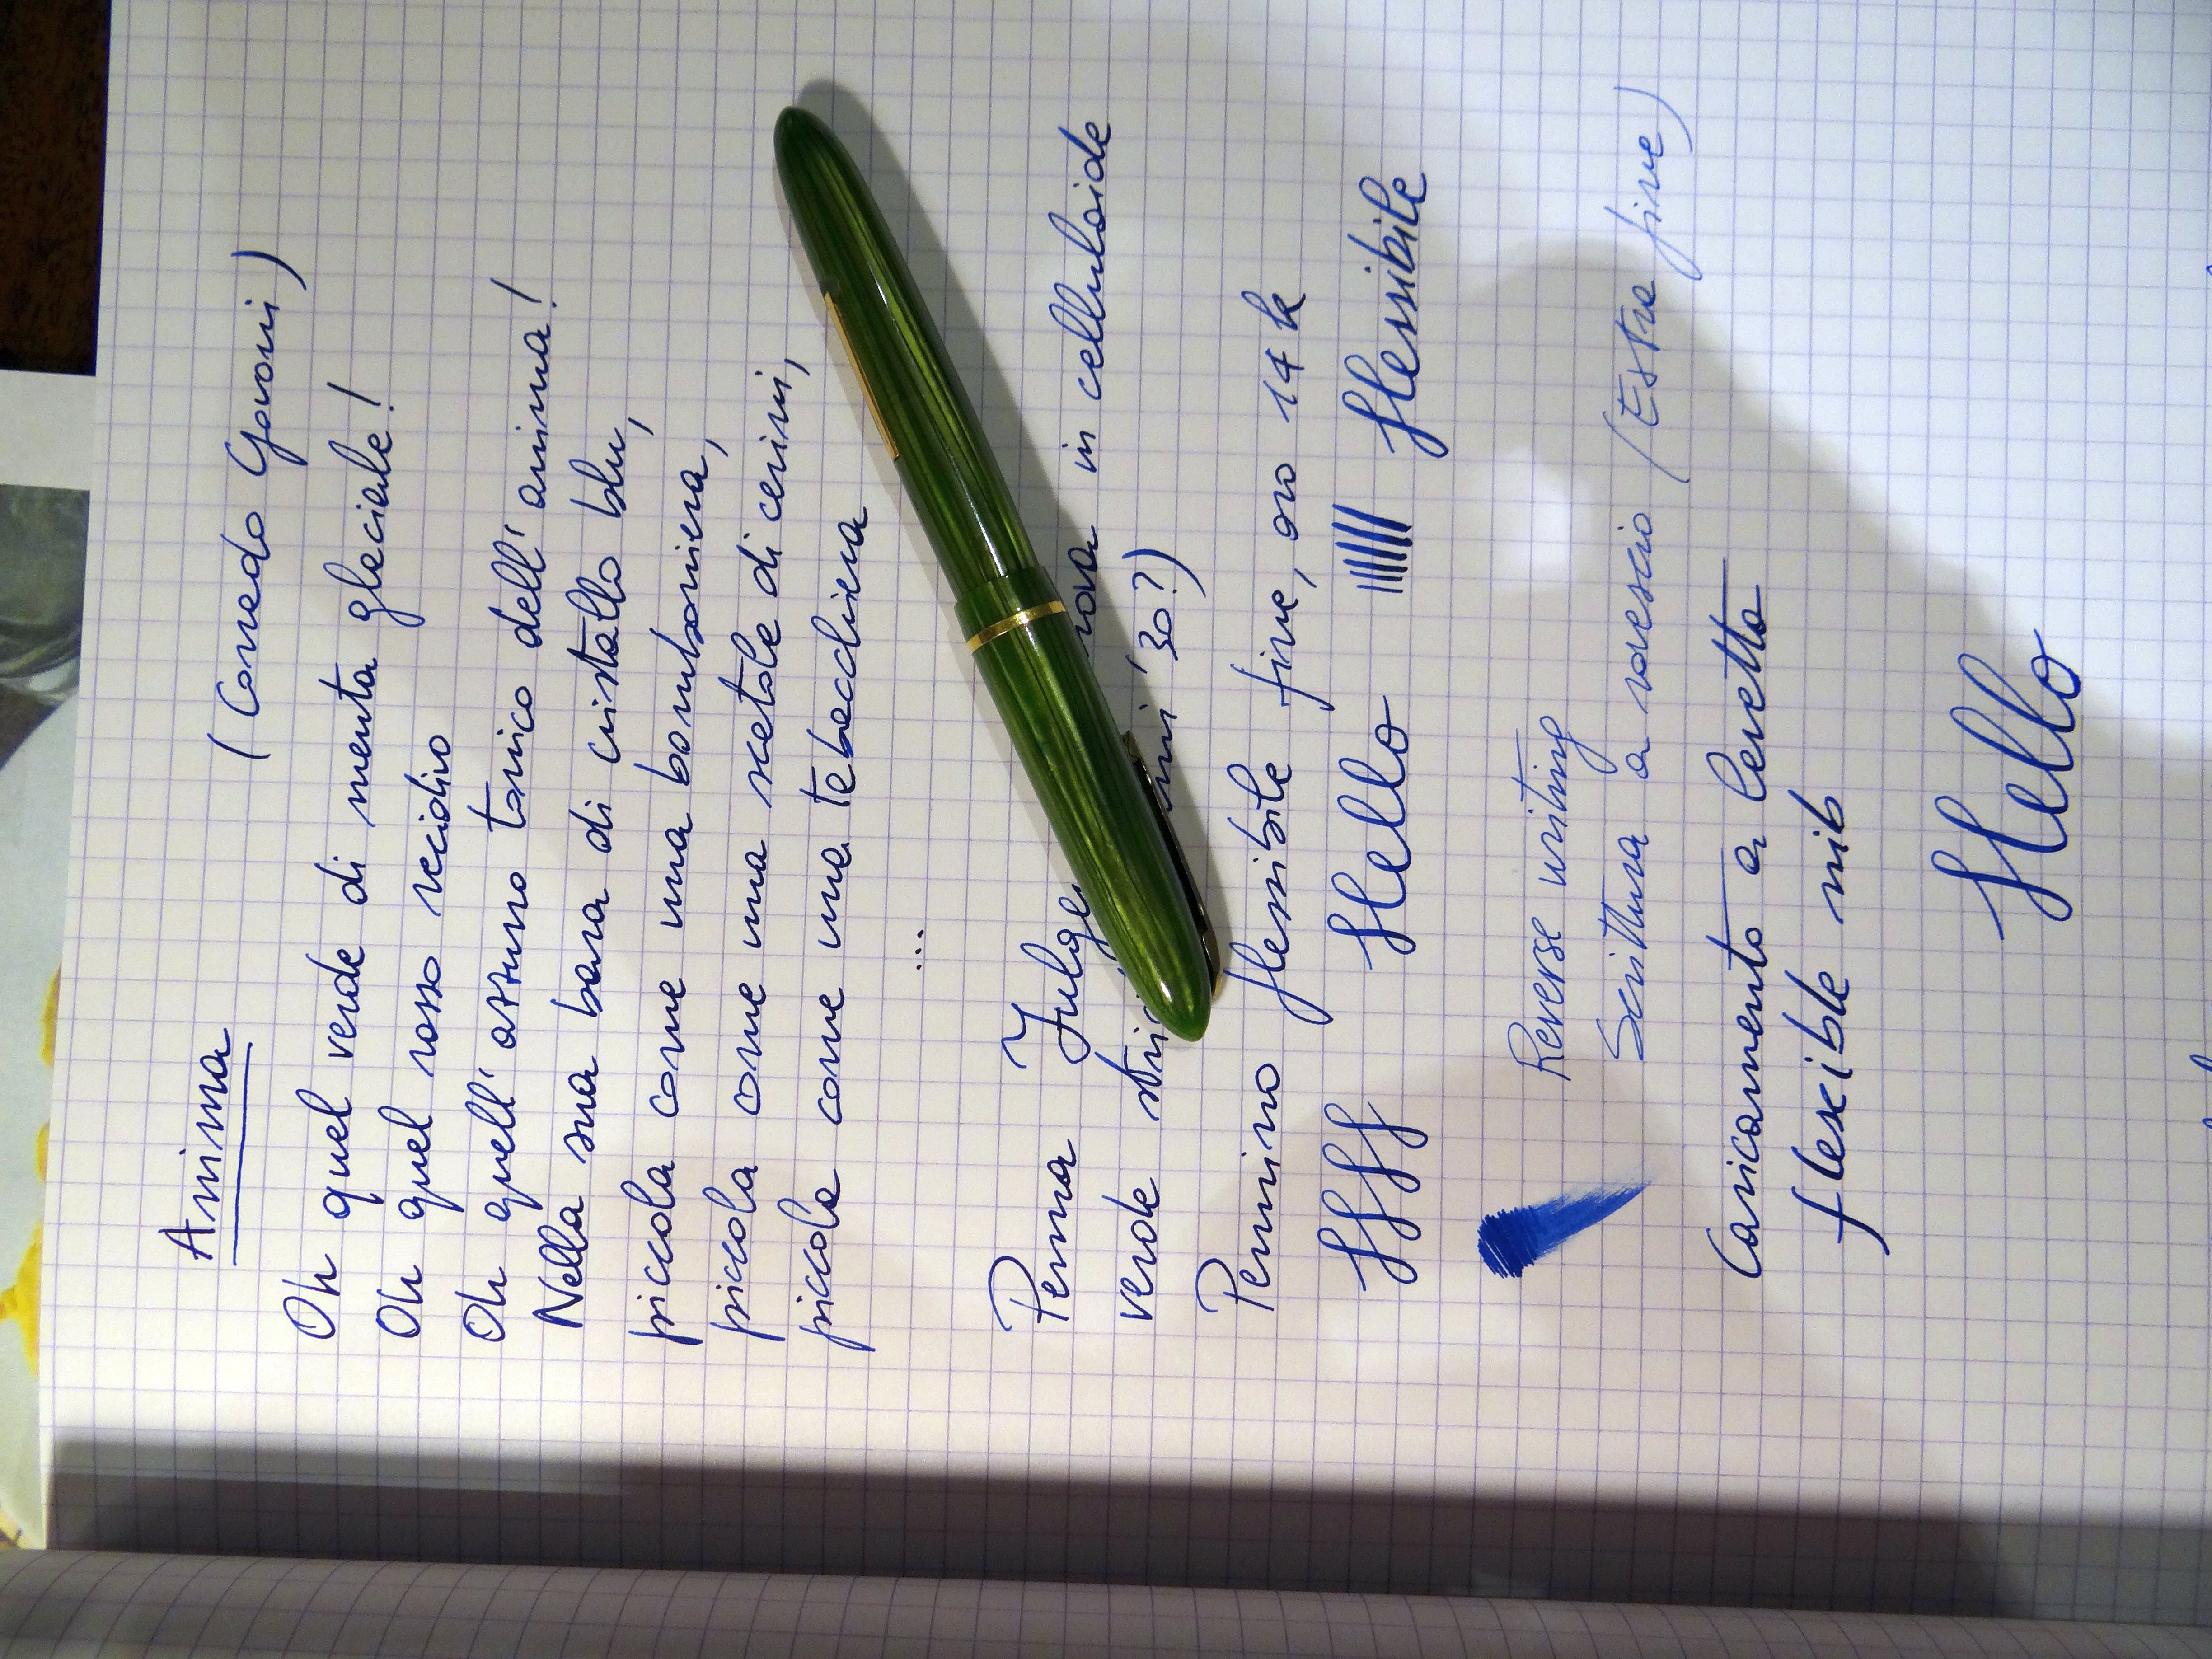 Anima
(Corrado Govoni)
Oh quel verde di menta glaciale!
Oh quel rosso recidivo
Oh quell' assurdo tonico dell' anima!
Nella sua bara di cristallo blu,
piccola come una bomboniera,
piccola come una scatola di cerini,
piccola come una tabacchiera
...
Penna in celluloide
verde '30?)
Pennino flessibile fine, oro 14 k
ffff Hello flessibile
Reverse writing
Scrittura a rovescio (Extra fine)
Caricamento a levetta
flexible nib
Hello